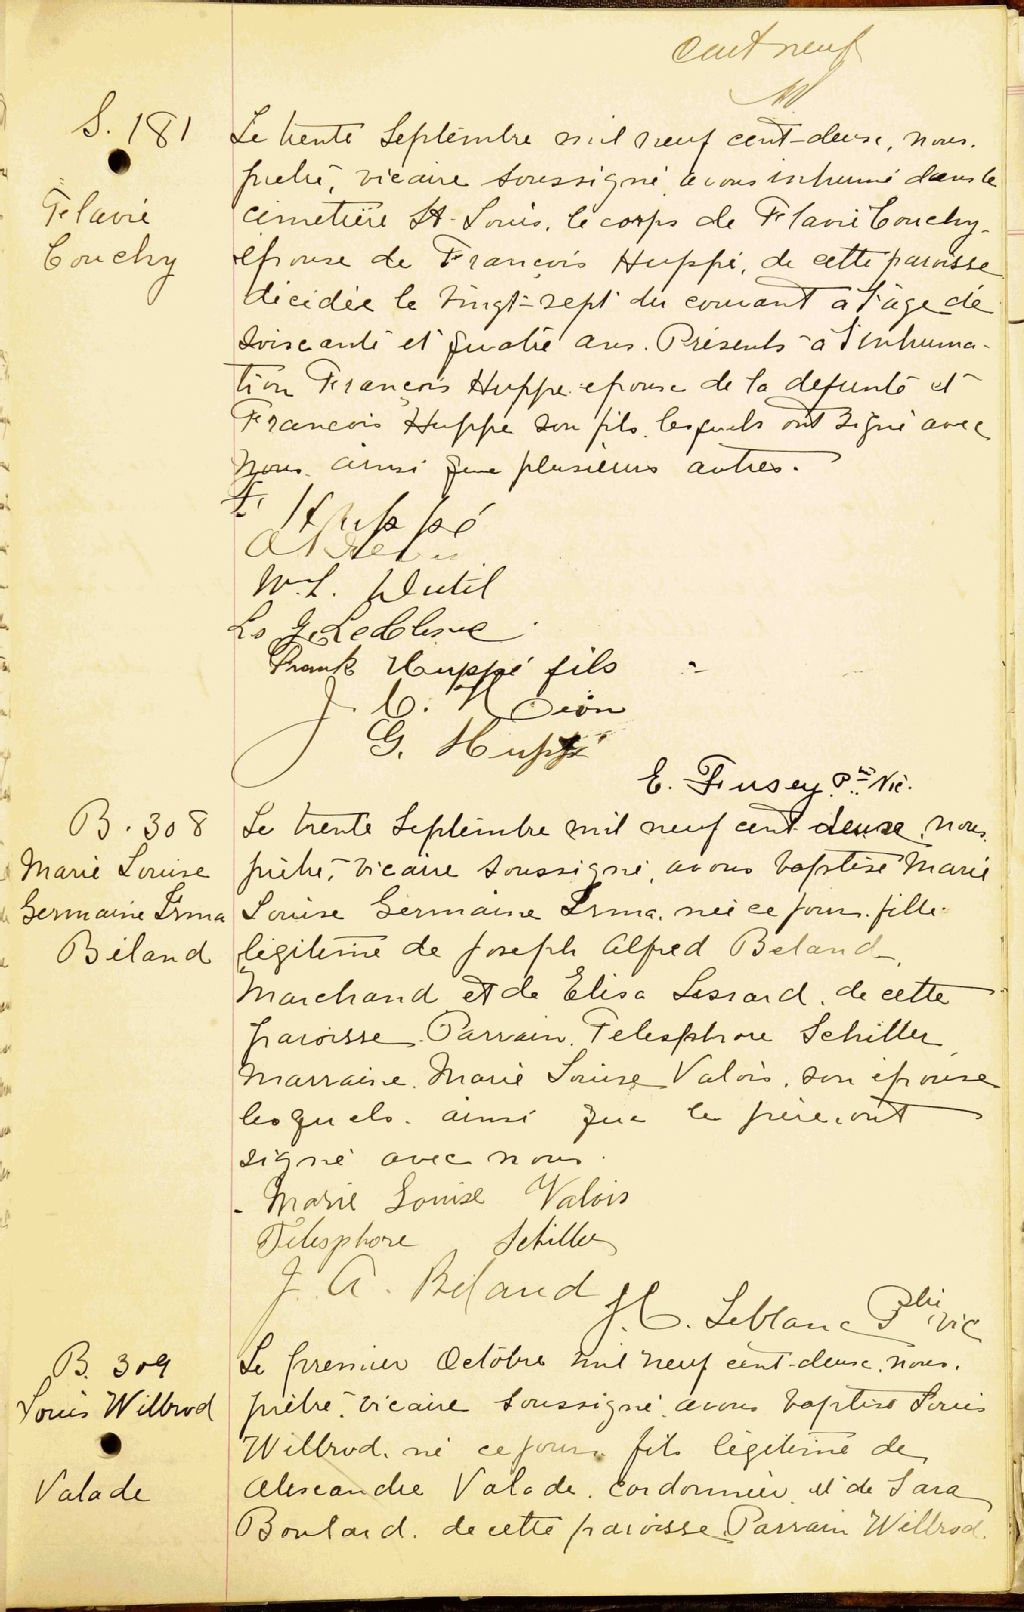 cent neuf
S. 181
Flavie
Couchy
Le trente Septembre mil neuf cent-deux, nous.
prêtre, vicaire soussigné, avons inhumé dans le
cimetière St-Louis, le corps de Flavie Couchy.
épouse de François Huppé, de cette paroisse
décédée le vingt-sept du courant à l'âge de
soixante et quatre ans. Présents à l'inhuma-
tion François Huppé epoux de la défunte et
Francois Huppé son fils lesquels ont signé avec
nous ainsi que plusieurs autres.
F. Huppé
W. L. Dutil
Frank Huppé fils
J. C. Dion
G. Huppé
E. Fusey Ptre Vic.
B. 308
Marie Louise
Germaine Irma
Béland
Le trente Septembre mil neuf cent deux, nous
prêtre, vicaire soussigné, avons baptisé Marie
Louise Germaine Irma, née ce jour, fille
légitime de Joseph Alfred Beland,
Marchand et de Elisa Lessard, de cette
paroisse Parrain Telesphore Schiller
Marraine, Marie Louise Valois, son épouse
lesquels, ainsi que le père, ont
signé avec nous.
Marie Louise Valois
Télesphore Schiller
J. A. Beland
H. C. Leblanc Ptre vic
B. 309
Louis Wilbrod
Valade
Le premier Octobre mil neuf cent-deux, nous,
prêtre, vicaire soussigné, avons baptisé Louis
Wilbrod, né ce jour, fils légitime de
Alexandre Valade, cordonnier et de Sara
Boulard, de cette paroisse Parrain Wilbrod